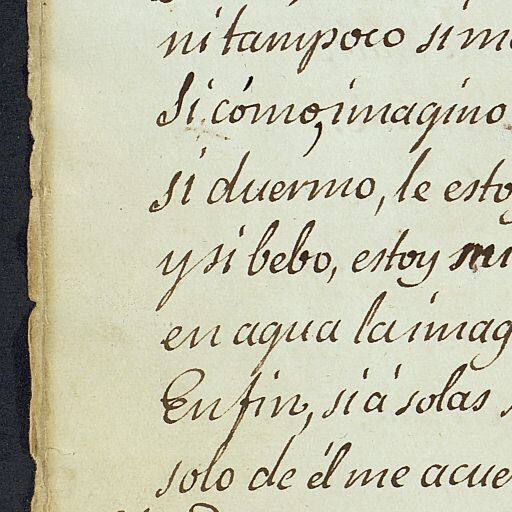 ni tampoco si me
Si cómo, imagino
si duermo, le estoy
y si bebo, estoy mi
en agua la imag
En fin, si á solas
solo de él me acue